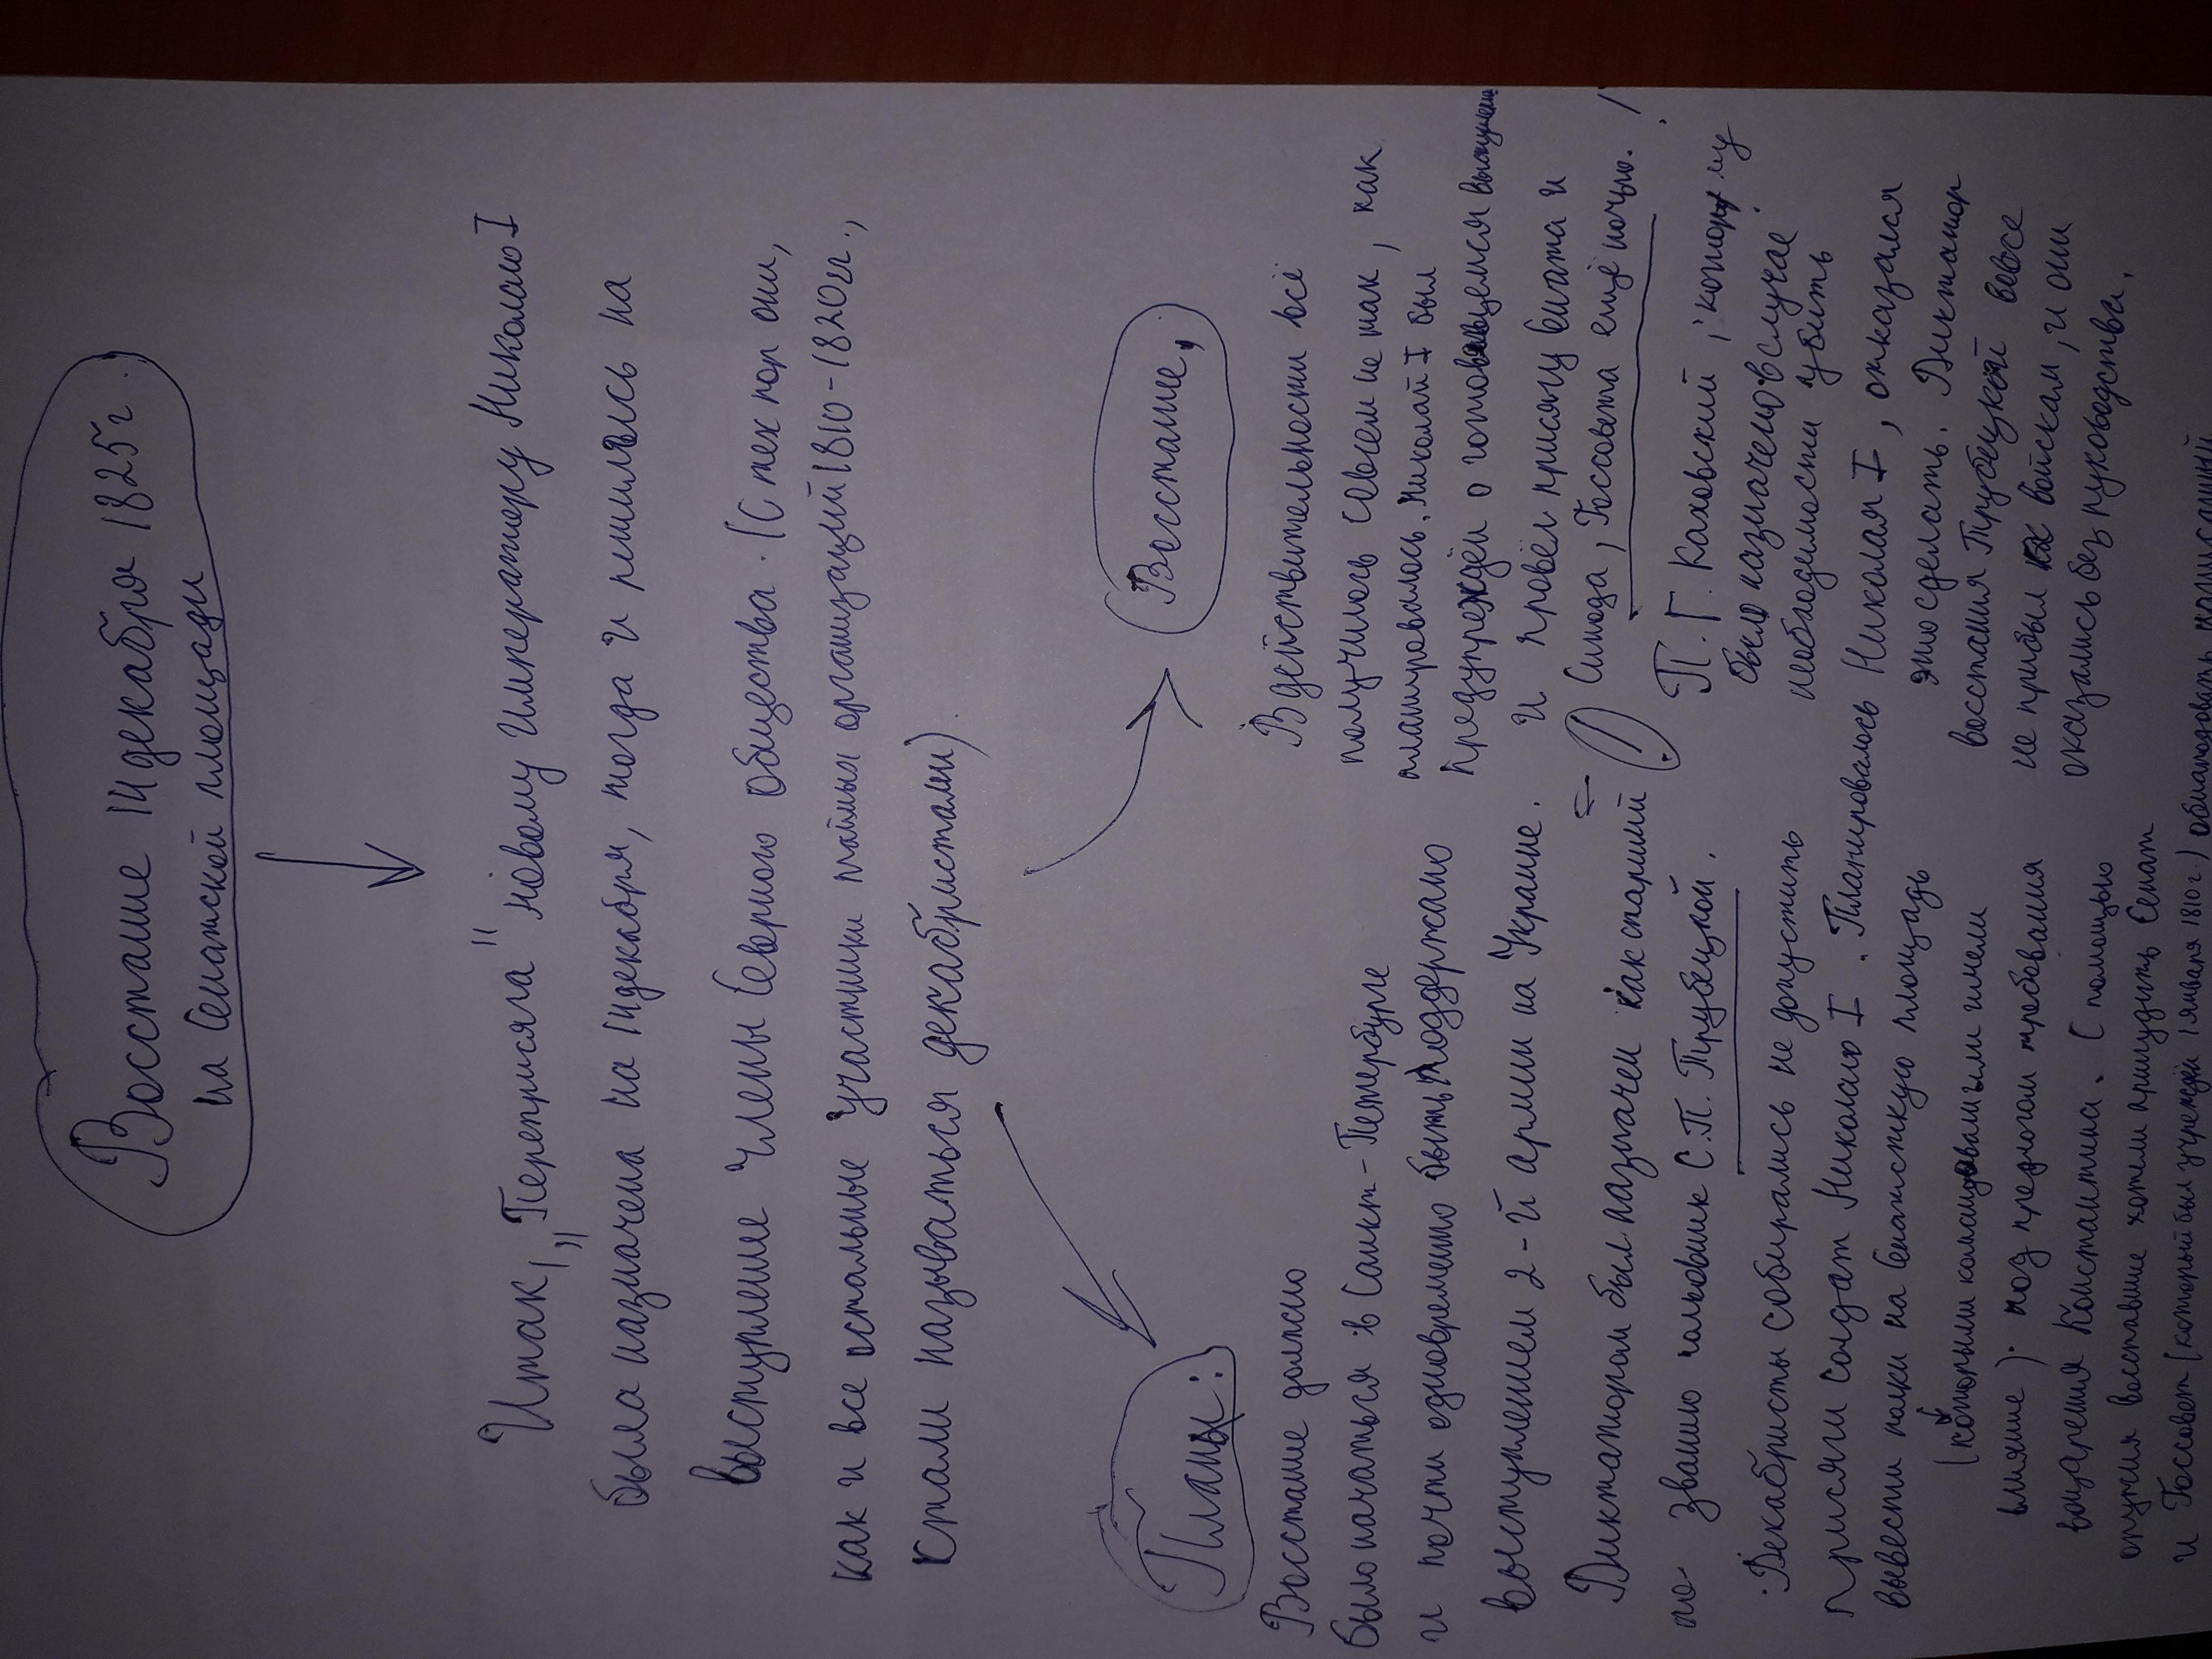 Восстание 14 декабря 1825г.
на Сенатской площади
Итак, „Переприсяга" новому Императеру Николаю I
была назначена на 14 декабря, тогда и решились на
выступление члены Северного Общества. (С тех пор они,
как и все остальные участники тайных организаций 1810-1820гг.,
стали называться декабристами)
Планы:
Восстание должно
было начаться в Санкт-Петербурге
и почти едновременно быть поддержано
выступлением 2-й армии на Украине.
Диктатором был назначен как старший
по званию полковник С.П. Трубецкой.
Декабристы собирались не допустить
присяги солдат Николаю I. Планировалось
вывести полки на Сенатскую площадь
(которыми командовали или имели
влияние) под предлогом требования
воцарения Константина. С помощью
оружия восставшие хотели принудить Сенат
и Госсовет (который был учреждён 1 января 1810г.) обнародовать
Восстание,
В действительности всё
получилось совсем не так, как
планировалось. Николай I был
предупреждён о готовящемся
и провёл присягу Сената и
Синода, Госсовета ещё ночью. !
(!)
П. Г. Каховский, которому
было назначено в случае
необходимости убить
Николая I, отказался
это сделать. Диктатор
восстания Трубецкой вовсе
не прибыл к войскам, и они
оказались без руководства.